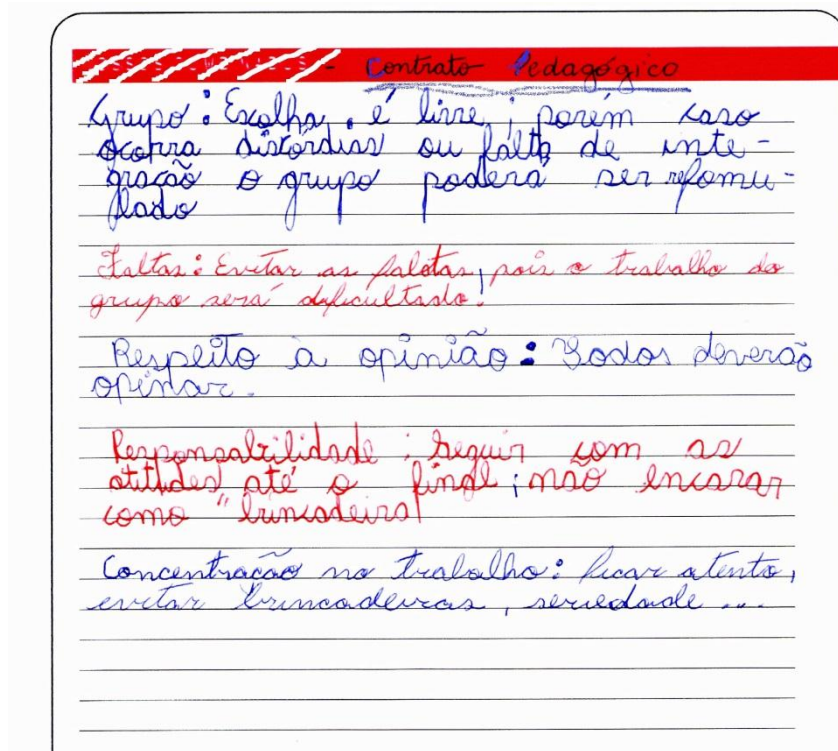 Contrato Pedagógico
Grupo: Escolha é livre; porém caso
ocorra discórdias ou falta de inte-
gração o grupo poderá ser refomu-
lado
Faltas: Evitar as falatas, pois o trabalho do
grupo será dificultado.
Respeito à opinião: Todos deverão
opinar.
Responsabilidade: Seguir com as
atitudes até o final; não encarar
como "brincadeira"
Concentração no trabalho: ficar atento,
evitar brincadeiras, seriedade...